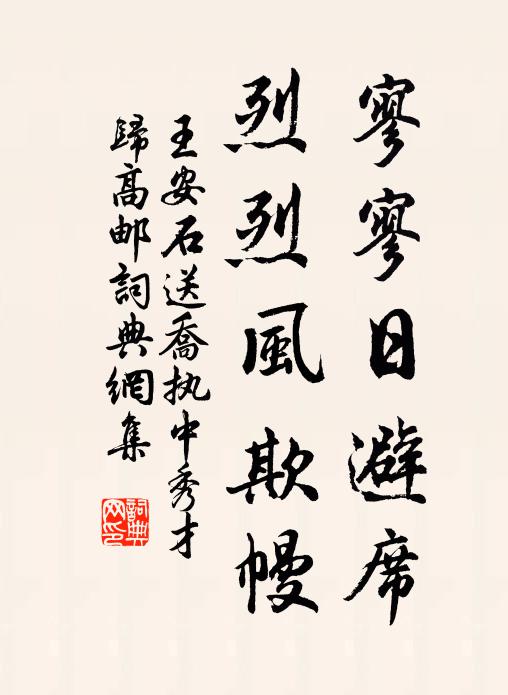 寥寥日避席
烈烈風欺幔
王安石送喬执中秀才
歸高邮詞典網集
詞典
网印